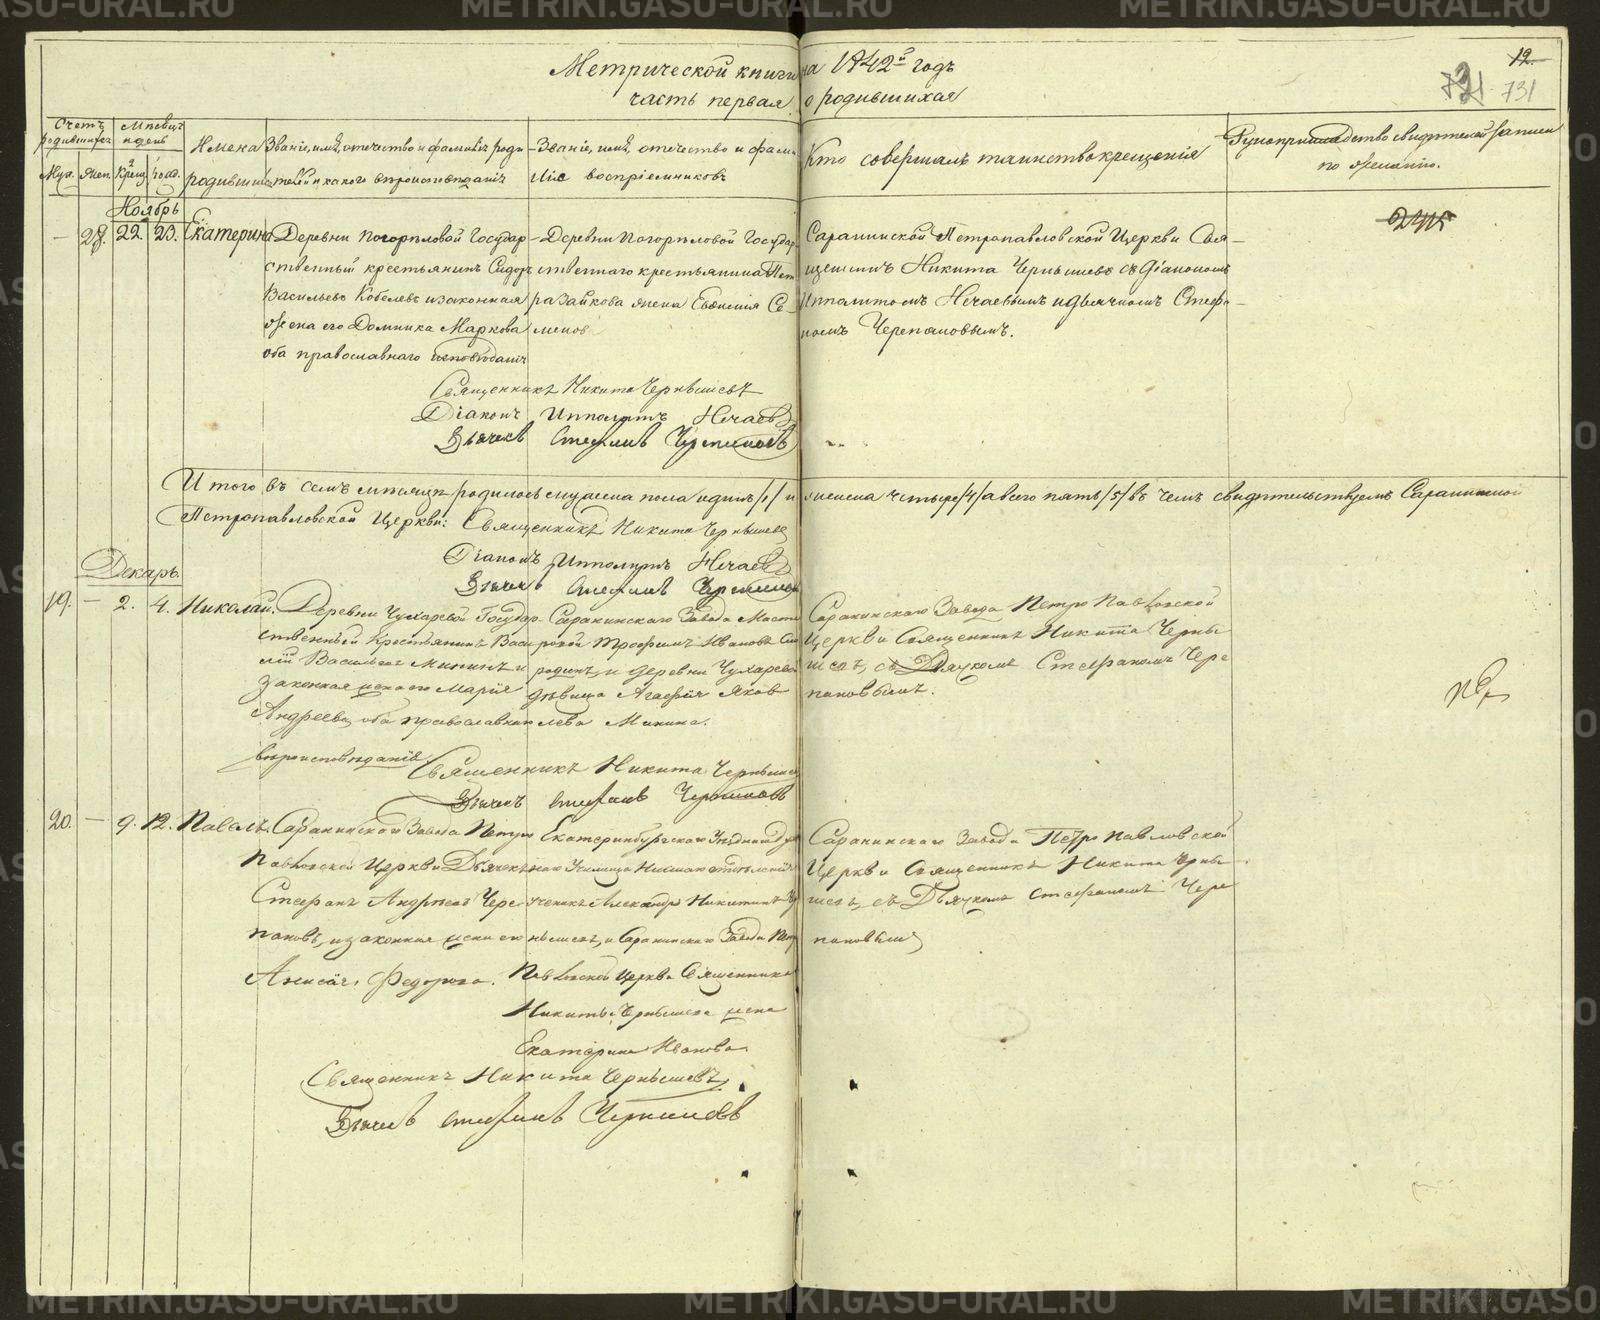 Метрической книги на 1842й годъ
часть первая о родившихся
12.
731
Счетъ родившихся
Мѣсяцъ и день
Имена родившихся
Званіе, имя, отечество и фамилія родителей и какого вѣроисповѣданія
Званіе, имя, отечество и фамилія воспріемниковъ
Кто совершалъ таинство крещенія
Рукоприкладство свидѣтелей записи по желанію.
Муж. Жен. Крещ. рожд.
Ноябрь
— 28. 22. 23. Екатерина
Деревни Погорѣловой Государ-
ственный крестьянинъ Сидоръ
Васильевъ Кобелевъ и законная
жена его Домника Маркова
оба православнаго исповѣданія
Деревни Погорѣловой Государ-
ственнаго крестьянина Пет-
ра Зайкова жена Евѳимія Се-
менова
Саранинской Петропавловской Церкви Свя-
щенникъ Никита Чернышевъ съ Діакономъ
Ипполитомъ Нечаевымъ и дьячкомъ Стефа-
номъ Черепановымъ.
2415
Священникъ Никита Чернышевъ
Діаконъ Ипполитъ Нечаевъ
Дьячекъ Стефанъ Черепановъ
Итого въ семъ мѣсяцѣ родилось мужеска пола одинъ /1/ и женска четыре /4/ а всего пять /5/ въ чемъ свидѣтельствуемъ Саранинской
Петропавловской Церкви: Священникъ Никита Чернышевъ
Діаконъ Ипполитъ Нечаевъ
Дьячекъ Стефанъ Черепановъ
Декабрь.
19. — 2. 4. Николай.
Деревни Чухаревой Государ-
ственный Крестьянинъ Васи-
лій Васильевъ Мининъ и
законная жена его Марія
Андреева, оба православнаго
вѣроисповѣданія
Саранинскаго Завода Масте-
ровой Трофимъ Ивановъ
и деревни Чухаревой
дѣвица Агафія Яков-
лева Минина.
Саранинскаго Завода Петро Павловской
Церкви Священникъ Никита Черны-
шевъ, съ Дьячкомъ Стефаномъ Чере-
пановымъ.
Священникъ Никита Чернышевъ
Дьячекъ Стефанъ Черепановъ
20. — 9. 12. Павелъ.
Саранинскаго Завода Петро
Павловской Церкви Дьячекъ
Стефанъ Андреевъ Чере-
пановъ, и законная жена его
Анисія Федорова.
Екатеринбургскаго Уѣзднаго Духов-
наго Училища Низшаго отдѣленія
ученикъ Александръ Никитинъ Чер-
нышевъ, и Саранинскаго Завода Петро
Павловской Церкви Священника
Никиты Чернышева жена
Екатерина Иванова
Саранинскаго Завода Петро Павловской
Церкви Священникъ Никита Черны-
шевъ, съ Дьячкомъ Стефаномъ Чере-
пановымъ
Священникъ Никита Чернышевъ,
Дьячекъ Стефанъ Черепановъ
METRIKI.GASU-URAL.RU